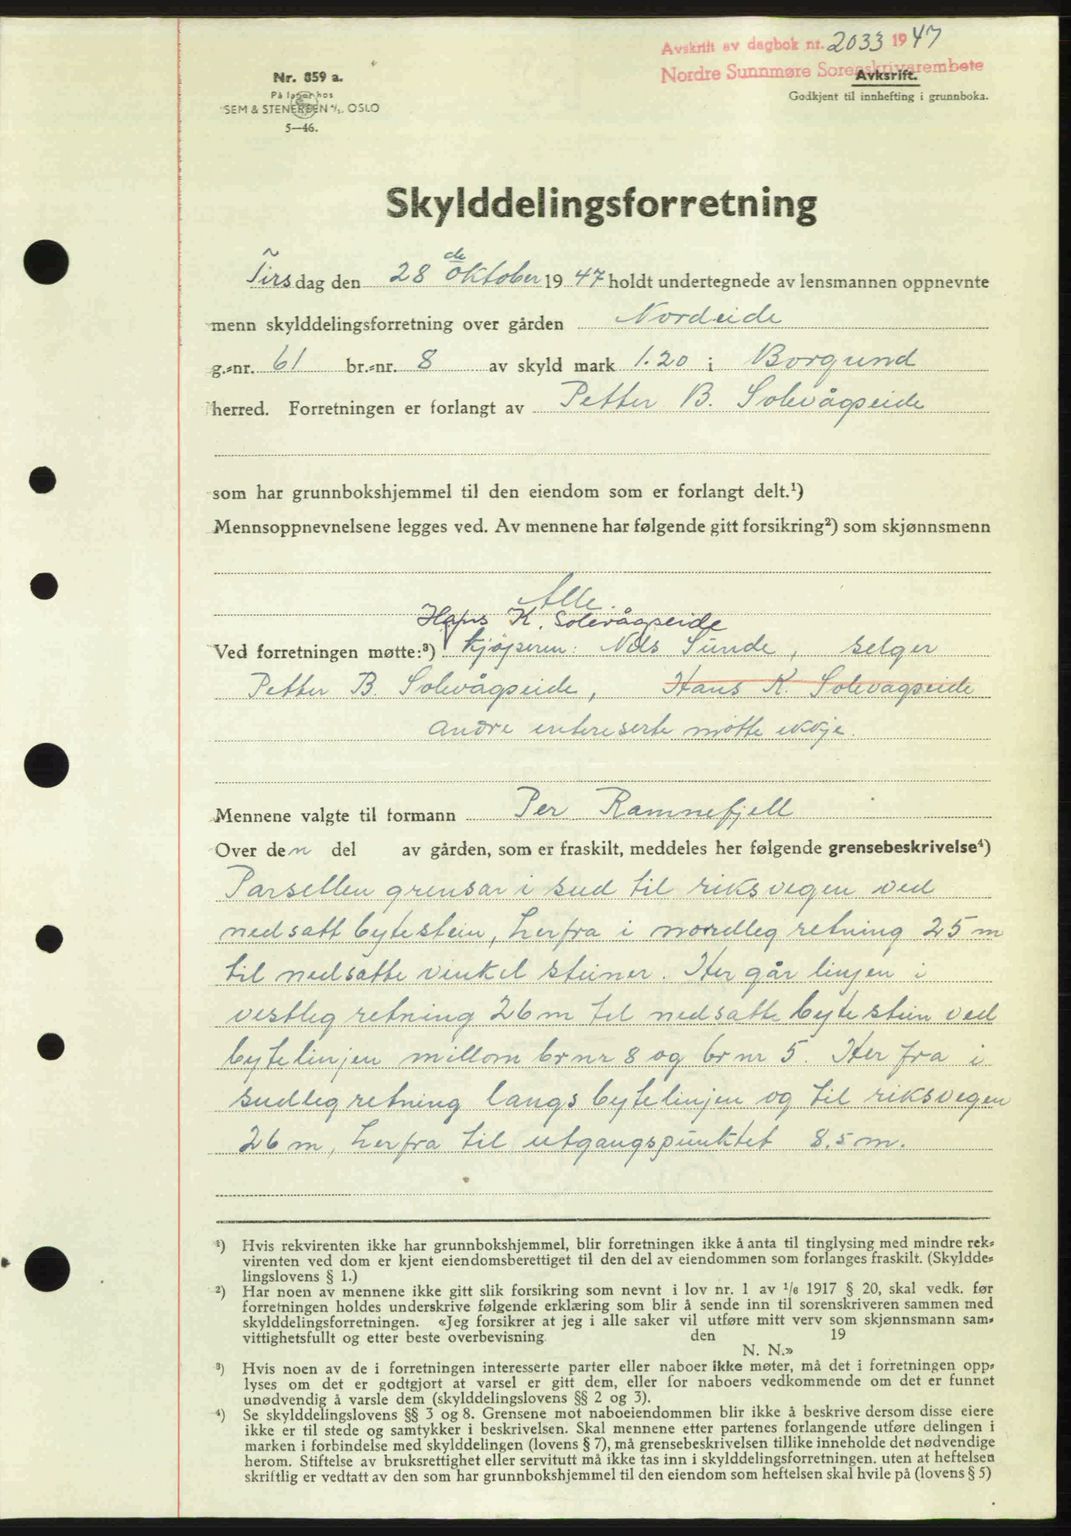 Avskrift av dagbok nr. 2033 1947
Nordre Sunnmøre Sorenskrivarembete
Nr. 859 a.
På lager hos
SEM & STENERSEN A/S. OSLO
5—46.
Avksrift.
Godkjent til innhefting i grunnboka.
Skylddelingsforretning
Tirsdag den 28 de oktober 1947 holdt undertegnede av lensmannen oppnevnte
menn skylddelingsforretning over gården Nordeide
g.-nr. 61 br.-nr. 8 av skyld mark 1.20 i Borgund
herred. Forretningen er forlangt av Petter B. Solevågseide
som har grunnbokshjemmel til den eiendom som er forlangt delt.¹)
Mennsoppnevnelsene legges ved. Av mennene har følgende gitt forsikring²) som skjønnsmenn
Alle.
Hans K. Solevågseide
Ved forretningen møtte:³) Kjøperen: Nils Sunde, selger
Petter B. Solevågseide, Hans K. Solevagseide
andre entereserte møtte ekkje.
Mennene valgte til formann Per Ramnefjell
Over den del av gården, som er fraskilt, meddeles her følgende grensebeskrivelse⁴)
Parsellen grensar i sud til riksvegen ved
nedsatt bytestein, herfra i nordleg retning 25 m
til nedsatte vinkel steiner. Her går linjen i
vestleg retning 26 m til nedsatte bytestein ved
bytelinjen millom brnr 8 og br nr 5. Her fra i
sudleg retning langs bytelinjen og til riksvegen
26 m, herfra til utgangspunktet 8.5 m.
¹) Hvis rekvirenten ikke har grunnbokshjemmel, blir forretningen ikke å anta til tinglysing med mindre rek-
virenten ved dom er kjent eiendomsberettiget til den del av eiendommen som forlanges fraskilt. (Skyldde-
lingslovens § 1.)
²) Har noen av mennene ikke gitt slik forsikring som nevnt i lov nr. 1 av 1/6 1917 § 20, skal vedk. før
forretningen holdes underskrive følgende erklæring som blir å sende inn til sorenskriveren sammen med
skylddelingsforretningen. «Jeg forsikrer at jeg i alle saker vil utføre mitt verv som skjønnsmann sam-
vittighetsfullt og etter beste overbevisning den 19
N. N.»
³) Hvis noen av de i forretningen interesserte parter eller naboer ikke møter, må det i forretningen opp-
lyses om det er godtgjort at varsel er gitt dem, eller for naboers vedkommende om det er funnet
unødvendig å varsle dem (skylddelingslovens §§ 2 og 3).
⁴) Se skylddelingslovens §§ 3 og 8. Grensene mot naboeiendommen blir ikke å beskrive dersom disse eiere
ikke er til stede og samtykker i beskrivelsen. Skal mennene etter partenes forlangende utføre delingen i
marken i forbindelse med skylddelingen (lovens § 7), må grensebeskrivelsen tillike inneholde det nødvendige
herom. Stiftelse av bruksrettighet eller servitutt må ikke tas inn i skylddelingsforretningen. uten at heftelsen
skriftlig er vedtatt av den som har grunnbokshjemmel til den eiendom som heftelsen skal hvile på (lovens § 5)